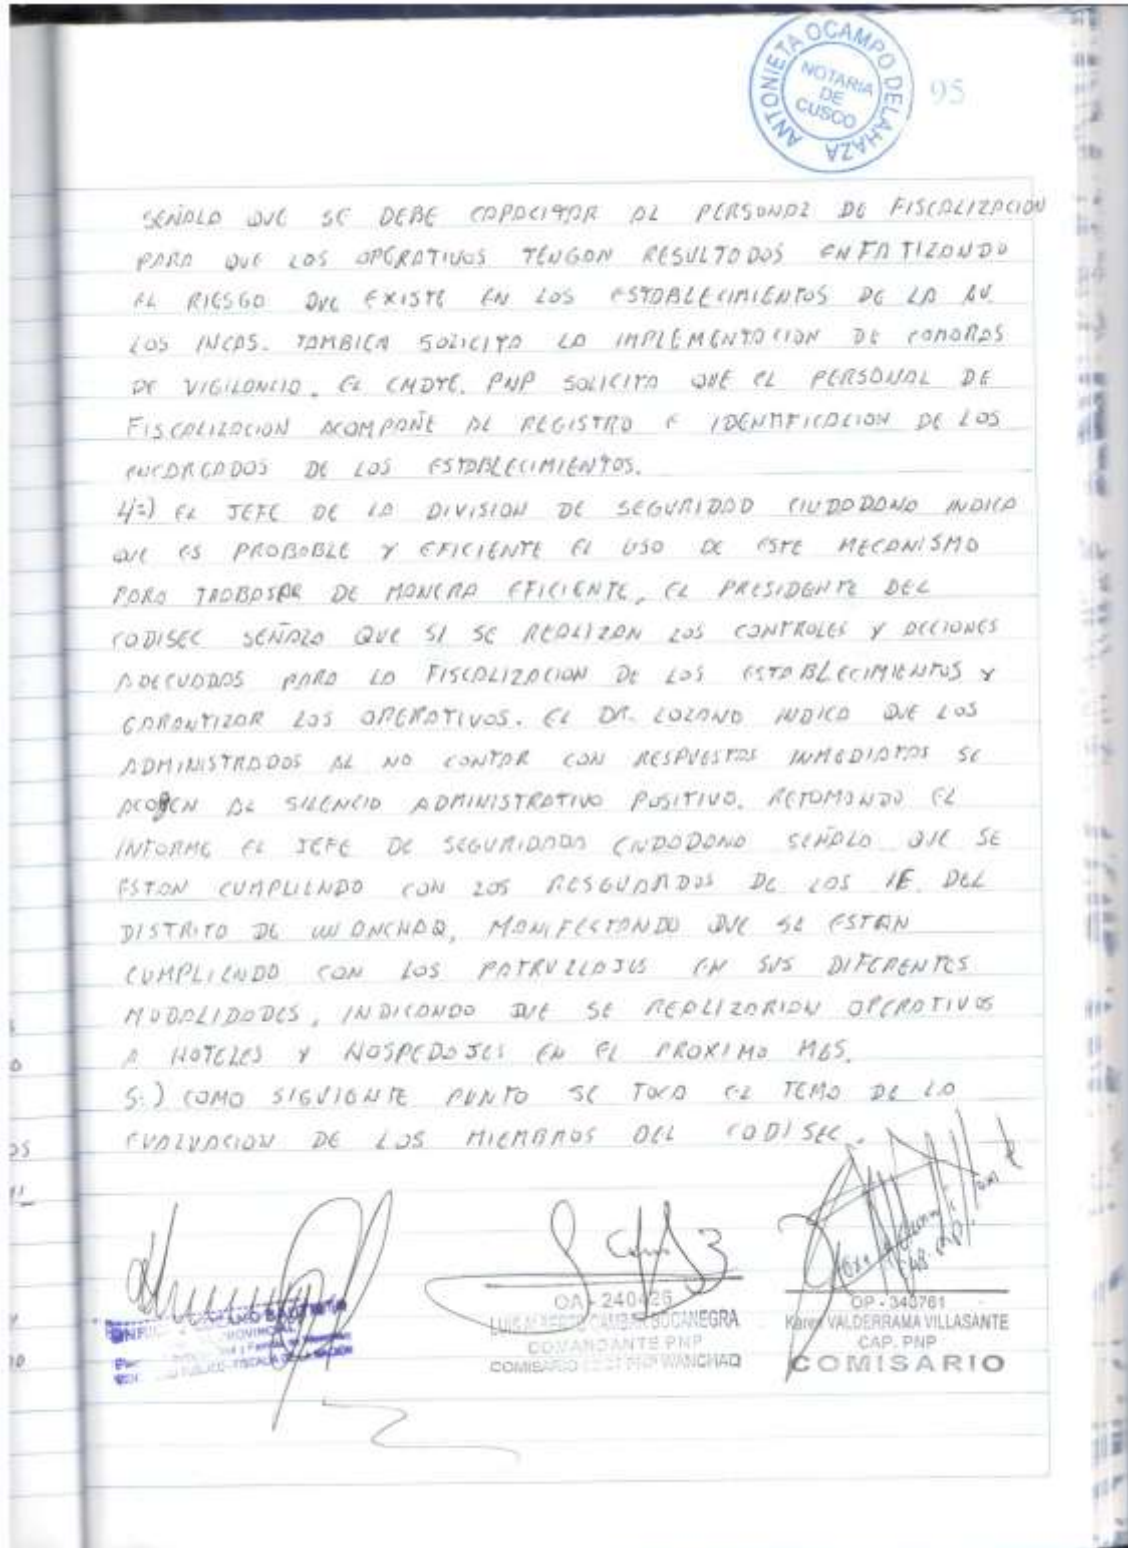 ANTONIETA OCAMPO DELAHAZA
NOTARIA
DE
CUSCO
95
SEÑALO QUE SE DEBE CAPACITAR AL PERSONAL DE FISCALIZACION
PARA QUE LOS OPERATIVOS TENGAN RESULTADOS ENFATIZANDO
EL RIESGO QUE EXISTE EN LOS ESTABLECIMIENTOS DE LA AV.
LOS INCAS. TAMBIEN SOLICITA LA IMPLEMENTACION DE CAMARAS
DE VIGILANCIA. EL CMDTE. PNP SOLICITA QUE EL PERSONAL DE
FISCALIZACION ACOMPAÑE AL REGISTRO E IDENTIFICACION DE LOS
ENCARGADOS DE LOS ESTABLECIMIENTOS.
4=) EL JEFE DE LA DIVISION DE SEGURIDAD CIUDADANA INDICA
QUE ES PROBABLE Y EFICIENTE EL USO DE ESTE MECANISMO
PARA TRABAJAR DE MANERA EFICIENTE, EL PRESIDENTE DEL
CODISEC SEÑALO QUE SI SE REALIZAN LOS CONTROLES Y ACCIONES
ADECUADAS PARA LA FISCALIZACION DE LOS ESTABLECIMIENTOS Y
GARANTIZAR LOS OPERATIVOS. EL DR. LOZANO INDICA QUE LOS
ADMINISTRADOS AL NO CONTAR CON RESPUESTAS INMEDIATAS SE
ACOGEN AL SILENCIO ADMINISTRATIVO POSITIVO. RETOMANDO EL
INFORME EL JEFE DE SEGURIDADA CIUDADANA SEÑALO QUE SE
ESTAN CUMPLIENDO CON LOS RESGUARDOS DE LOS IE. DEL
DISTRITO DE WANCHAQ, MANIFESTANDO QUE SE ESTAN
CUMPLIENDO CON LOS PATRULLAJES EN SUS DIFERENTES
MODALIDADES, INDICANDO QUE SE REALIZARIAN OPERATIVOS
A HOTELES Y HOSPEDAJES EN EL PROXIMO MES.
5.) COMO SIGUIENTE PUNTO SE TOCA EL TEMA DE LA
EVALUACION DE LOS MIEMBROS DEL CODISEC.
OA - 240426
LUIS ALBERTO CAMBAR BOCANEGRA
COMANDANTE PNP
COMISARIO PNP WANCHAQ
OP - 343761
Karen VALDERRAMA VILLASANTE
CAP. PNP
COMISARIO